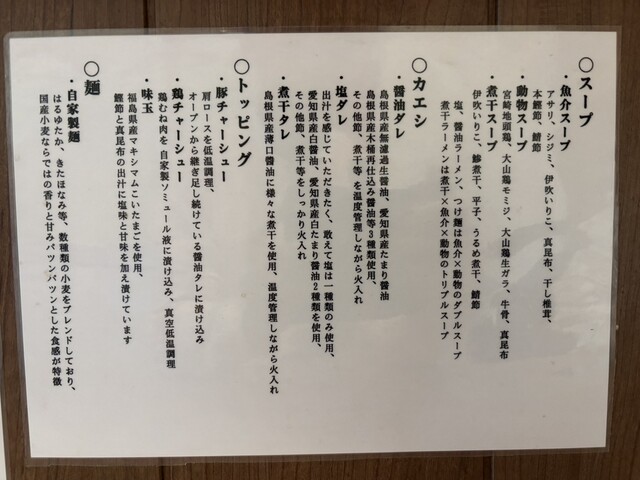 ○スープ
・魚介スープ
アサリ、シジミ、伊吹いりこ、真昆布、干し椎茸、
本鰹節、鯖節
・動物スープ
宮崎地頭鶏、大山鶏モミジ、大山鶏生ガラ、牛骨、真昆布
・煮干スープ
伊吹いりこ、鯵煮干、平子、うるめ煮干、鯖節
塩、醤油ラーメン、つけ麺は魚介×動物のダブルスープ
煮干ラーメンは煮干×魚介×動物のトリプルスープ
○カエシ
・醤油ダレ
島根県産無濾過生醤油、愛知県産たまり醤油
島根県産木桶再仕込み醤油等3種類使用、
その他節、煮干等を温度管理しながら火入れ
・塩ダレ
出汁を感じていただきたく、敢えて塩は一種類のみ使用、
愛知県産白醤油、愛知県産白たまり醤油2種類を使用、
その他節、煮干等をしっかり火入れ
・煮干タレ
島根県産薄口醤油に様々な煮干を使用、温度管理しながら火入れ
○トッピング
・豚チャーシュー
肩ロースを低温調理、
オープンから継ぎ足し続けている醤油タレに漬け込み
・鶏チャーシュー
鶏むね肉を自家製ソミュール液に漬け込み、真空低温調理
・味玉
福島県産マキシマムこいたまごを使用、
鰹節と真昆布の出汁に塩味と甘味を加え漬けています
○麺
・自家製麺
はるゆたか、きたほなみ等、数種類の小麦をブレンドしており、
国産小麦ならではの香りと甘みパツンパツンとした食感が特徴